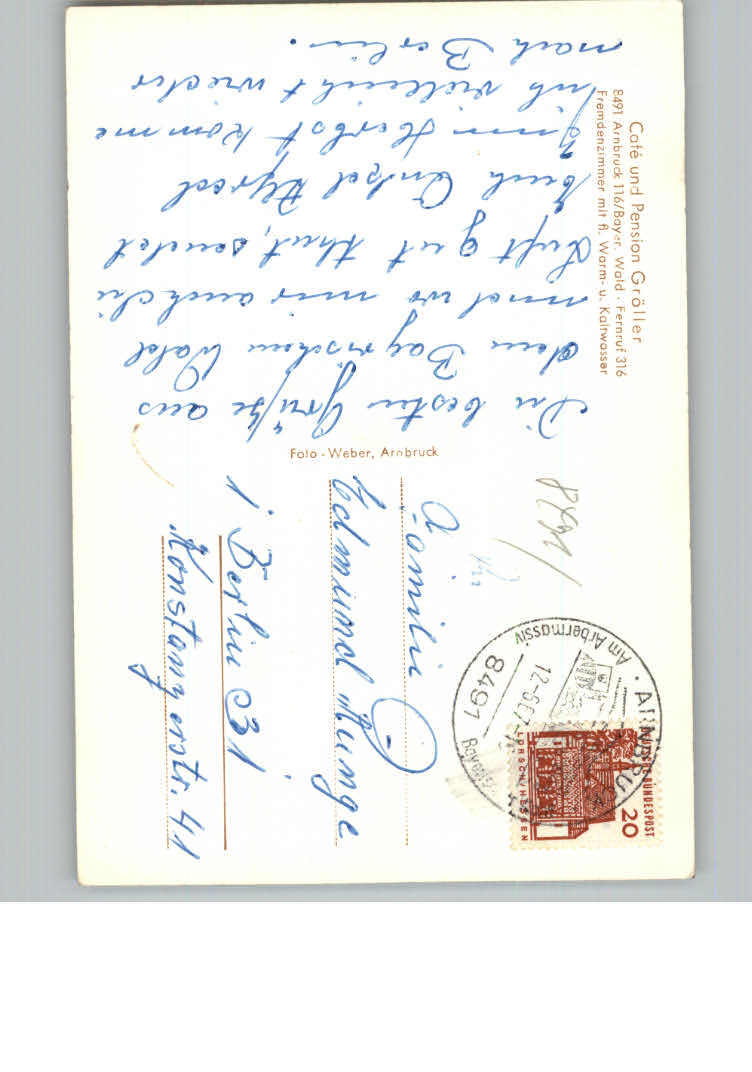 Café und Pension Gröller
8491 Arnbruck 116/Bayer. Wald · Fernruf 316
Fremdenzimmer mit fl. Warm- u. Kaltwasser
Die besten Grüße aus
dem Bayrischen Wald
und wo mir auch die
Luft gut thut, sendet
Euch Onkel
Zum Herbst komme
ich vieleicht wieder
nach Berlin.
Foto - Weber, Arnbruck
8491
ARNBRUCK
Am Arbermassiv
8491
DEUTSCHE BUNDESPOST
20
LORSCH/HESSEN
Edmund Runge
1 Berlin 31
Konstanzerstr. 41